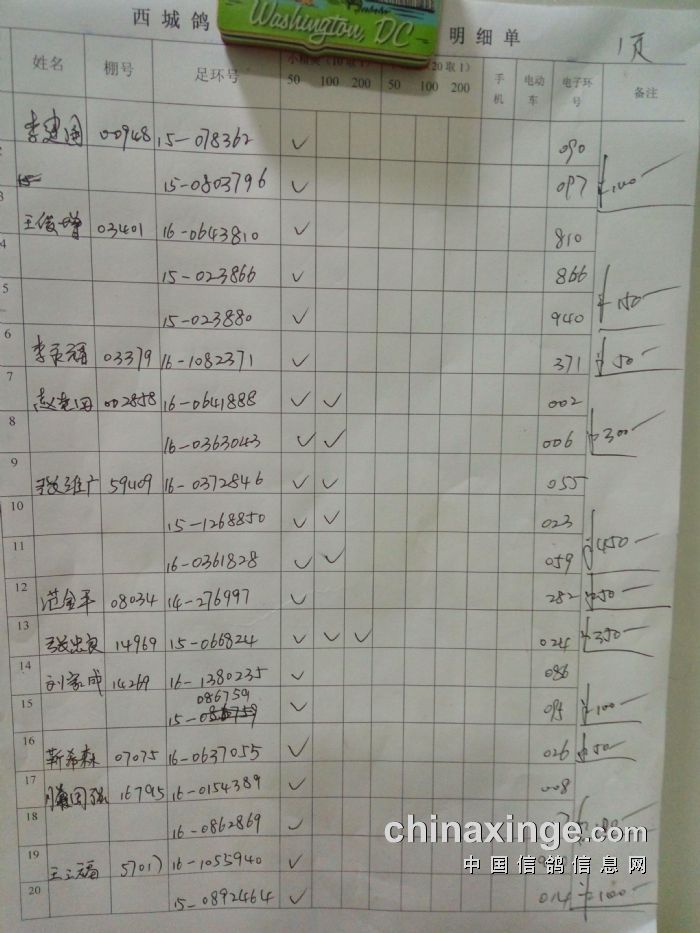 西城鸽 明细单 1页
Washington, DC
姓名 棚号 足环号 (10取1) (20取1) 手机 电动车 电子环号 备注
50 100 200 50 100 200
李建国 00948 15-078362 ✓ 090
15-0803796 ✓ 097
3 王俊增 03401 16-0643810 ✓ 810
4 15-023866 ✓ 866
5 15-023880 ✓ 940 150
6 03379 16-1082371 ✓ 371 50
7 002858 16-0641888 ✓ ✓ 002
8 16-0363043 ✓ ✓ 006 300
9 59409 16-0372846 ✓ ✓ 055
10 15-1268850 ✓ ✓ 023
11 16-0361828 ✓ ✓ 059 450
12 范金平 08034 14-276997 ✓ 282 50
13 张忠良 14969 15-066824 ✓ ✓ ✓ 024 350
14 刘家成 14269 16-1380235 ✓ 086
086759
15 15- ✓ 095 100
16 靳希森 07075 16-0637055 ✓ 026 50
17 16795 16-0154389 ✓ 008
18 16-0862869 ✓
chinaxinge.com
19 王三福 57017 16-1055940 ✓
中国信鸽信息网
20 15-0892464 ✓ 014 100